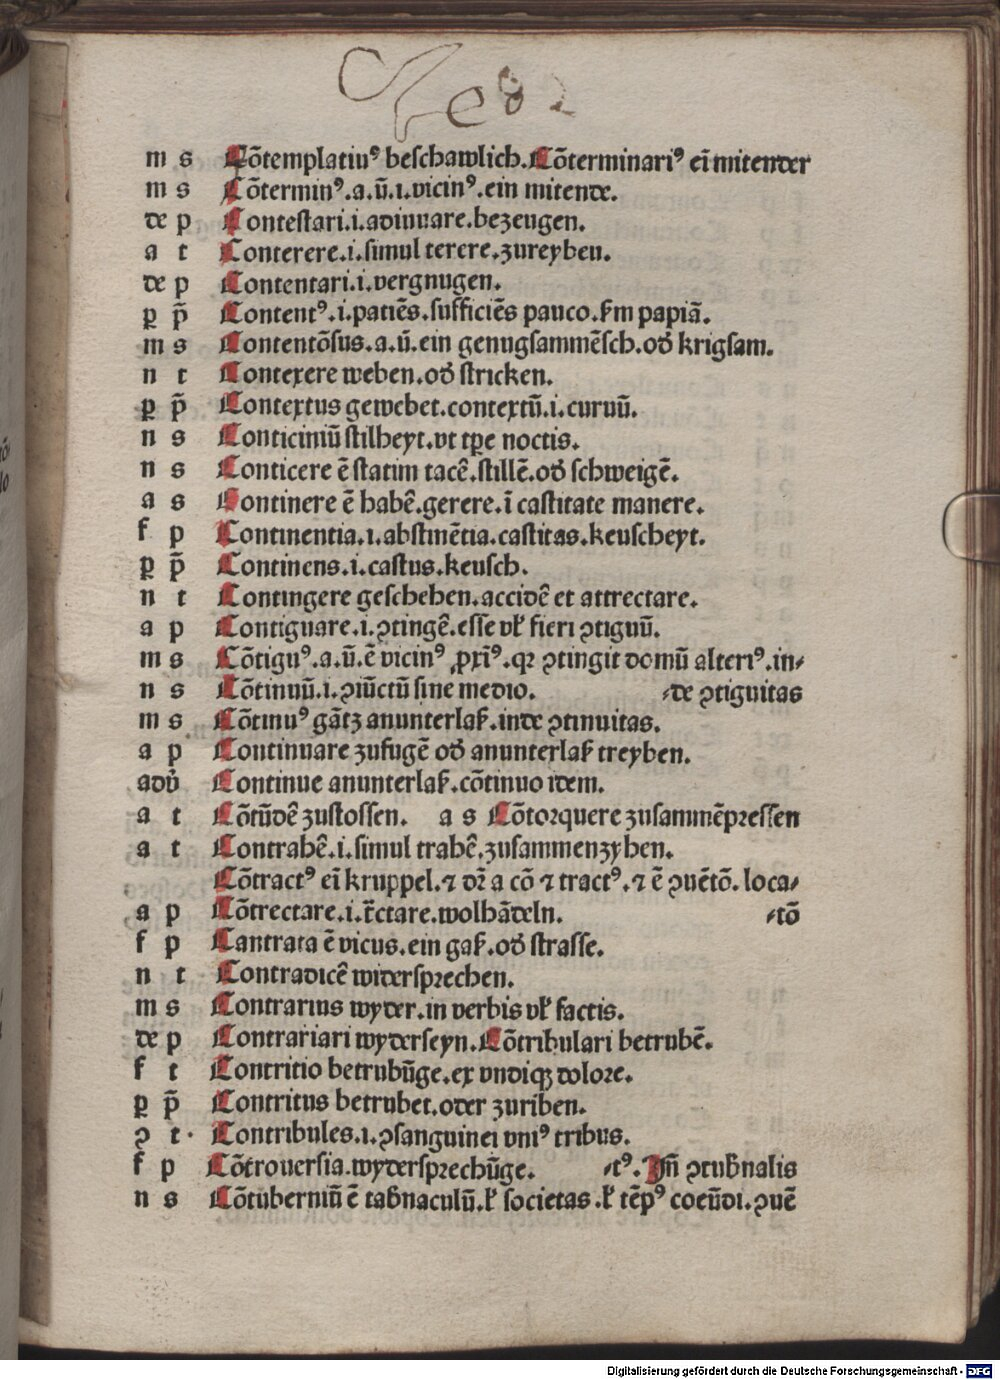 m s Cōtemplatiuꝰ beschawlich. Cōterminariꝰ eī mitender
m s Cōterminꝰ.a.ū.i.vicinꝰ.ein mitende.
de p Contestari.i.adiuuare.bezeugen.
a t Conterere.i.simul terere.zureyben.
de p Contentari.i.vergnugen.
ꝑ p̄ Contentꝰ.i.patiēs.sufficiēs pauco.ẜm papiā.
m s Contentōsus.a.ū.ein genugsammēsch.od̄ krigsam.
n t Contexere weben.od̄ stricken.
ꝑ p̄ Contextus gewebet.contextū.i.curuū.
n s Conticiniū stilheyt.vt tꝑe noctis.
n s Conticere ē statim tacē.stillē.od̄ schweigē.
a s Continere ē habē.gerere.ī castitate manere.
f p Continentia.i.abstinētia.castitas.keuscheyt.
ꝑ p̄ Continens.i.castus.keusch.
n t Contingere geschehen.accidē et attrectare.
a p Contiguare.i.ꝯtingē.esse vł fieri ꝯtiguū.
m s Cōtiguꝰ.a.ū.ē vicinꝰ ꝓxīꝰ.qꝛ ꝯtingit domū alteriꝰ.in⸗
n s Cōtinuū.i.ꝯiūctū sine medio. ⸗de ꝯtiguitas
m s Cōtinuꝰ gātz anunterlaß.inde ꝯtinuitas.
a p Continuare zufugē od̄ anunterlaß treyben.
adv̄ Continue anunterlaß.cōtinuo idem.
a t Cōtūdē zustossen. a s Cōtorquere zusammēpressen
a t Contrahē.i.simul trahē.zusammenzyhen.
Cōtractꝰ eī kruppel.⁊ dꝛ̄ a cō ⁊ tractꝰ.⁊ ē ꝯuētō.loca⸗
a p Cōtrectare.i.tr̄ctare.wolhādeln. ⸗tō
f p Cantrata ē vicus.ein gaß.od̄ strasse.
n t Contradicē widersprechen.
m s Contrarius wyder.in verbis vł factis.
de p Contrariari wyderseyn.Cōtribulari betrubē.
f t Contritio betrubūge.ex vndiqꝫ dolore.
ꝑ p̄ Contritus betrubet.oder zuriben.
ꝯ t. Contribules.i.ꝯsanguinei vniꝰ tribus.
f p Cōtrouersia.wydersprechūge. ⸗tꝰ.Jn̄ ꝯtub̄nalis
n s Cōtuberniū ē tab̄naculū.ł societas.ł tēpꝰ coeūdi.ꝯuē
Digitalisierung gefördert durch die Deutsche Forschungsgemeinschaft - DFG